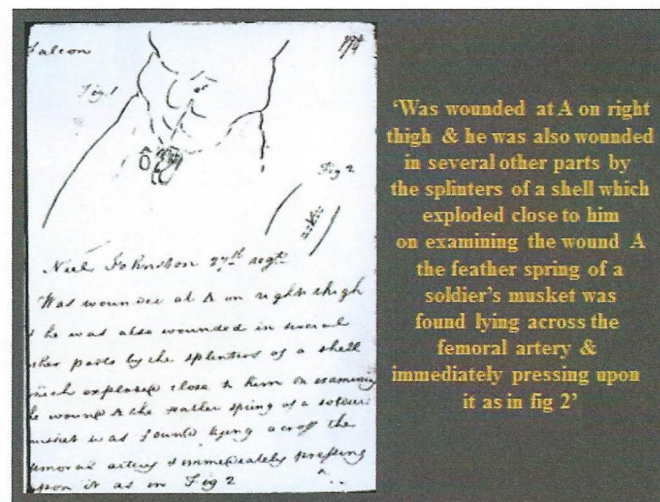 Falcon
Fig. 1
Fig 2
Neil Johnston 27th regt.
Was wounded at A on right thigh
he was also wounded in several
other parts by the splinters of a shell
which exploded close to him on examining
the wound A the feather spring of a soldiers
musket was found lying across the
femoral artery & immediately pressing
upon it as in Fig 2
'Was wounded at A on right
thigh & he was also wounded
in several other parts by
the splinters of a shell which
exploded close to him
on examining the wound A
the feather spring of a
soldier's musket was
found lying across the
femoral artery &
immediately pressing upon
it as in fig 2'